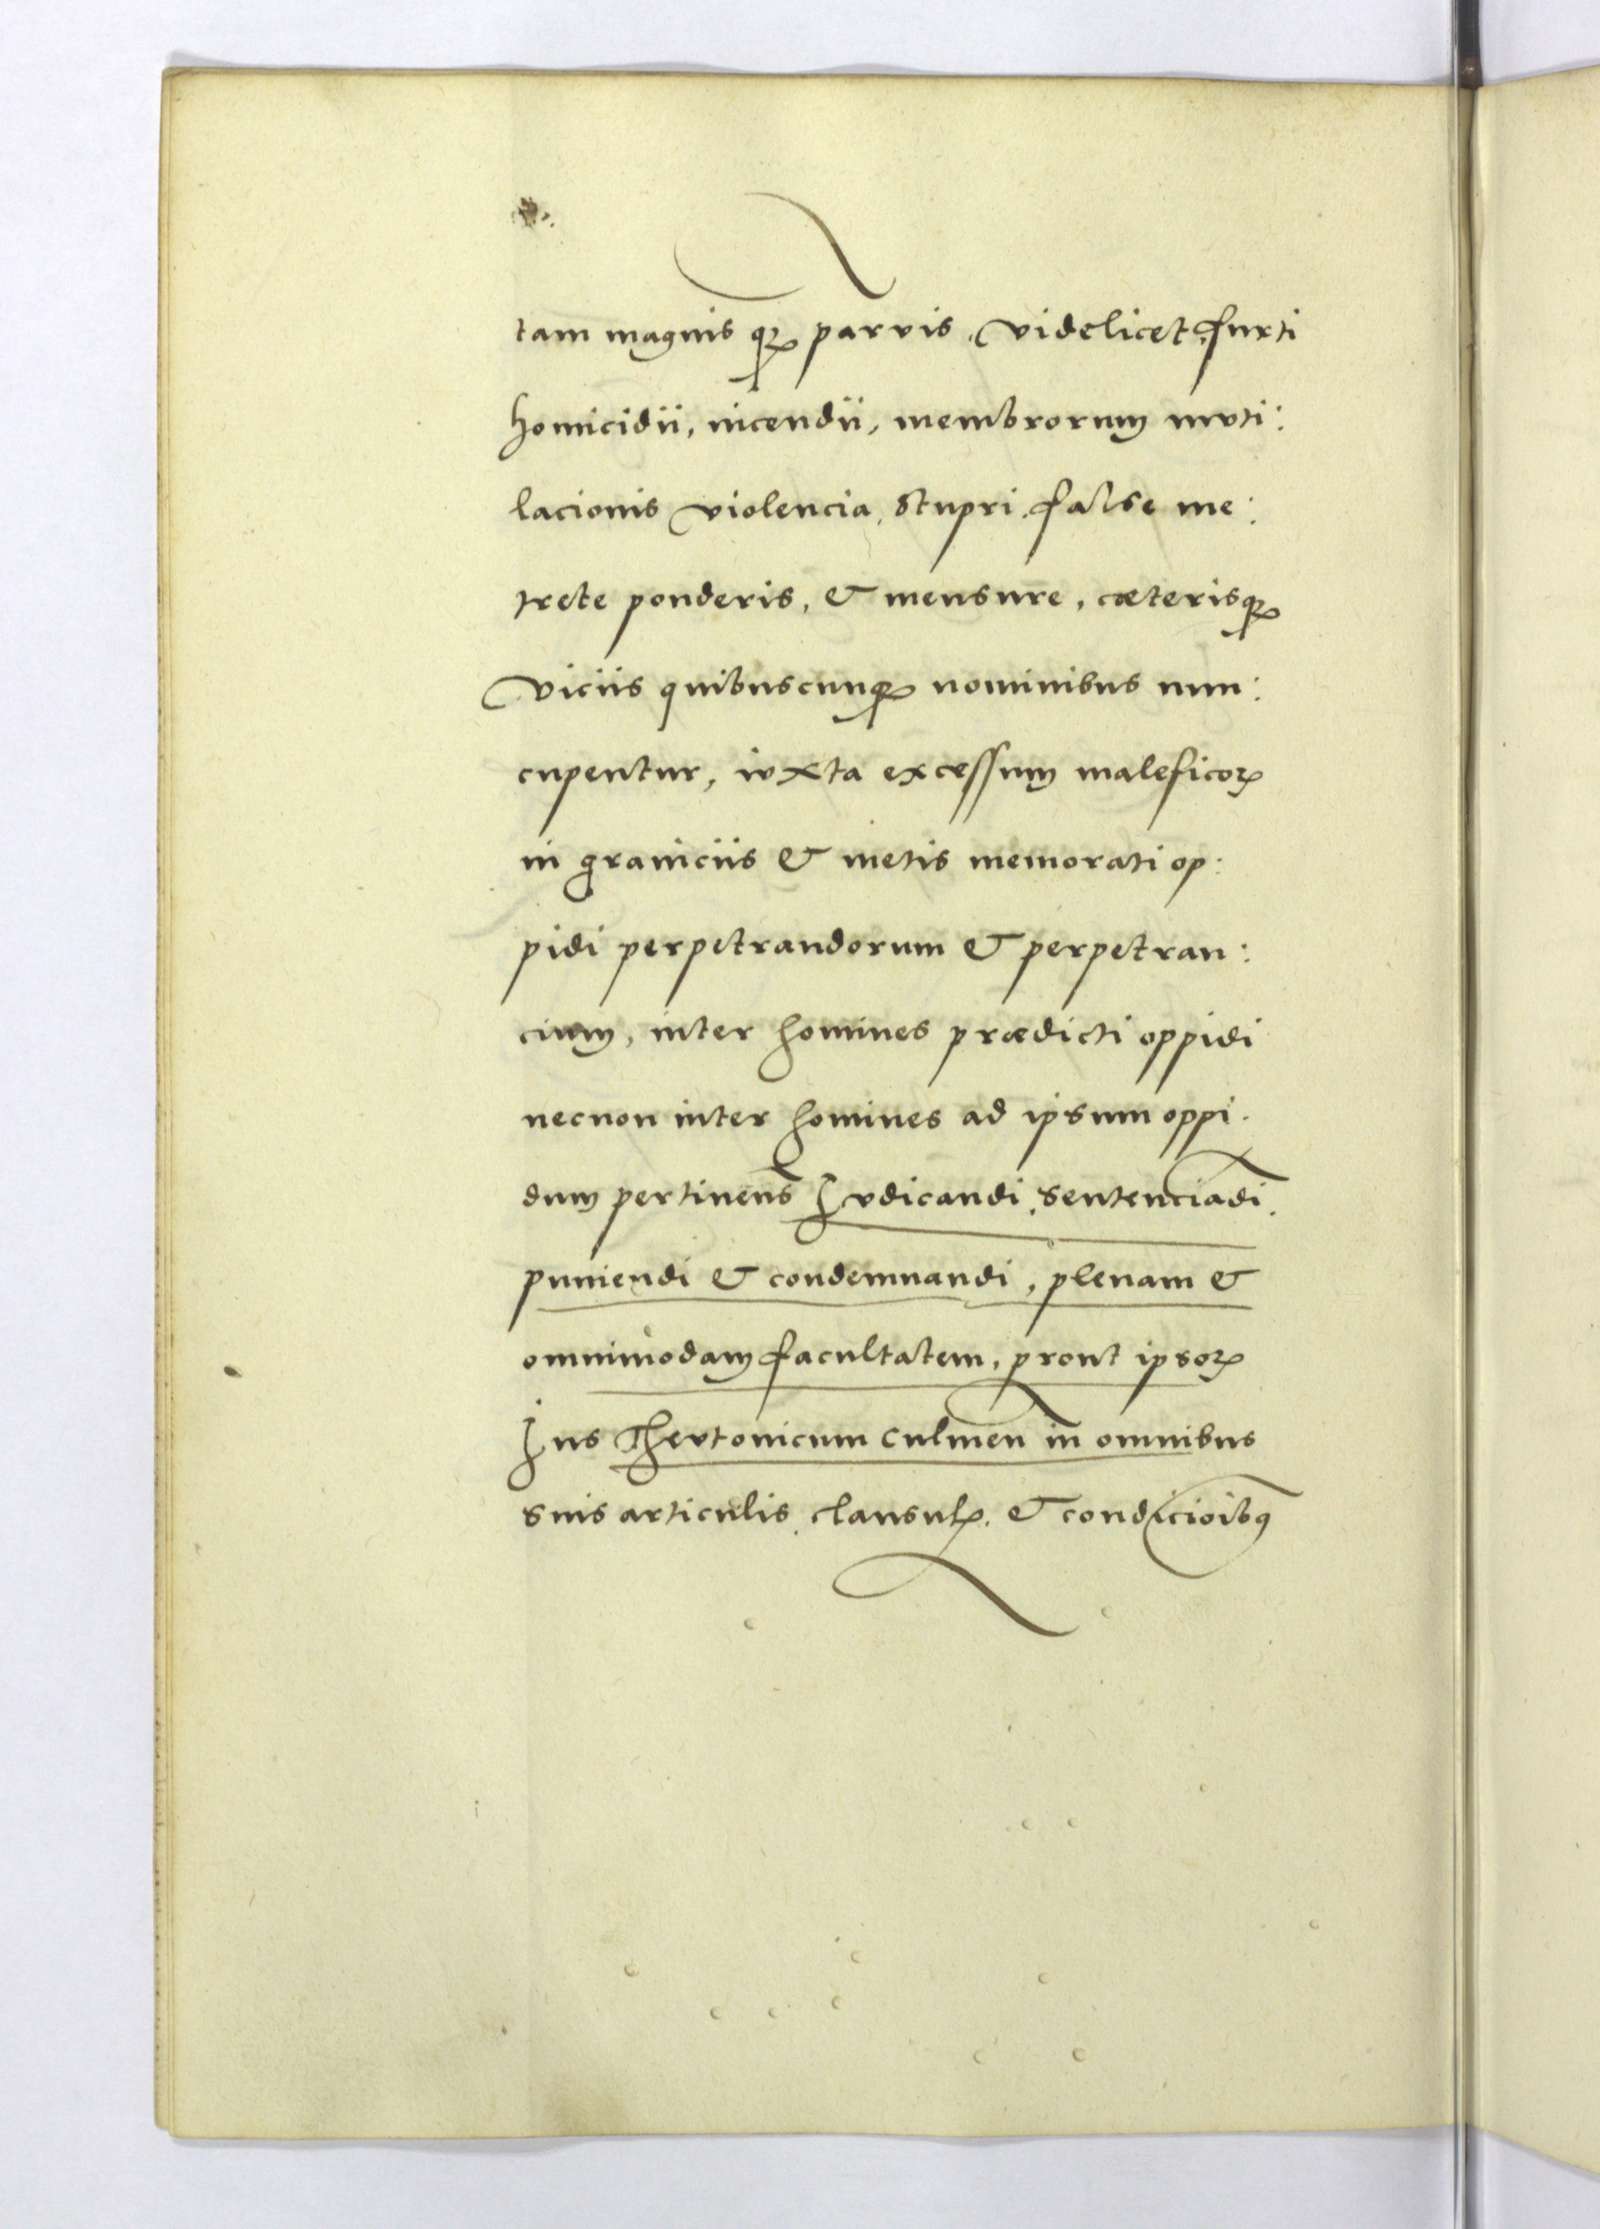 tam magnis qꝫ parvis, videlicet, furti
homicidii, incendii, membrorum mvti:
lacionis violencia, stupri, false me:
trete ponderis, & mensure, cæterisqꝫ
viciis quibuscunqꝫ nominibus nun:
cupentur, ivxta excessum maleficoꝝ
in graniciis & metis memorati op:
pidi perpetrandorum & perpetran:
cium, inter homines prædicti oppidi
necnon inter homines ad ipsum oppi:
dum pertineñs Ivdicandi, sentenciādi,
puniendi & condemnandi, plenam &
omnimodam facultatem, prout ipsoꝝ
Ius Thevtonicum culmeñ in omnibus
suis articulis, clausulꝭ, & condicioībꝯ